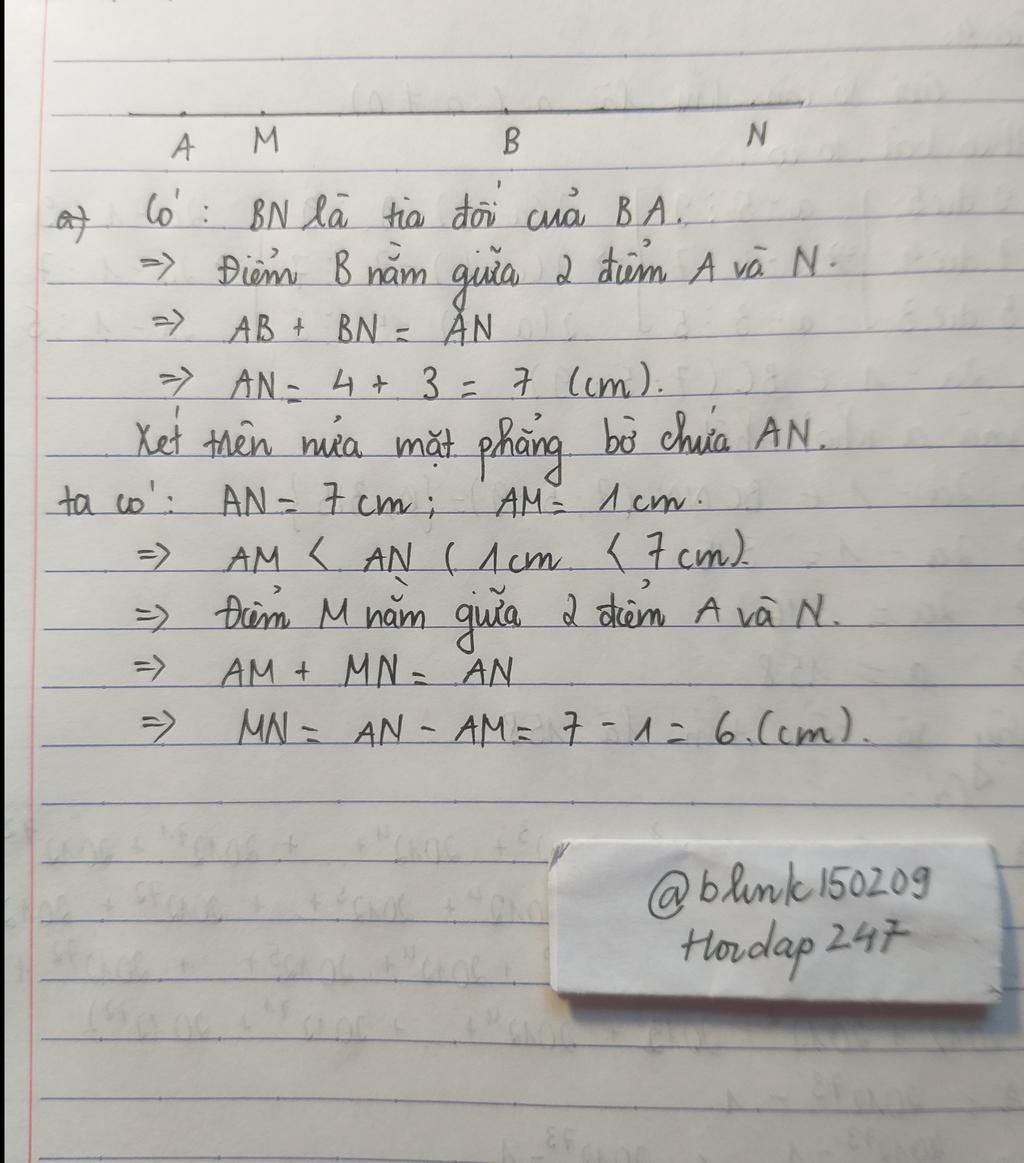 A M B N
a) Có: BN là tia đối của BA.
=> Điểm B nằm giữa 2 điểm A và N.
=> AB + BN = AN
=> AN = 4 + 3 = 7 (cm).
Xét trên nửa mặt phẳng bờ chứa AN.
ta có: AN = 7 cm; AM = 1 cm.
=> AM < AN (1cm < 7cm).
=> Điểm M nằm giữa 2 điểm A và N.
=> AM + MN = AN
=> MN = AN - AM = 7 - 1 = 6.(cm).
@blink150209
Hoidap247